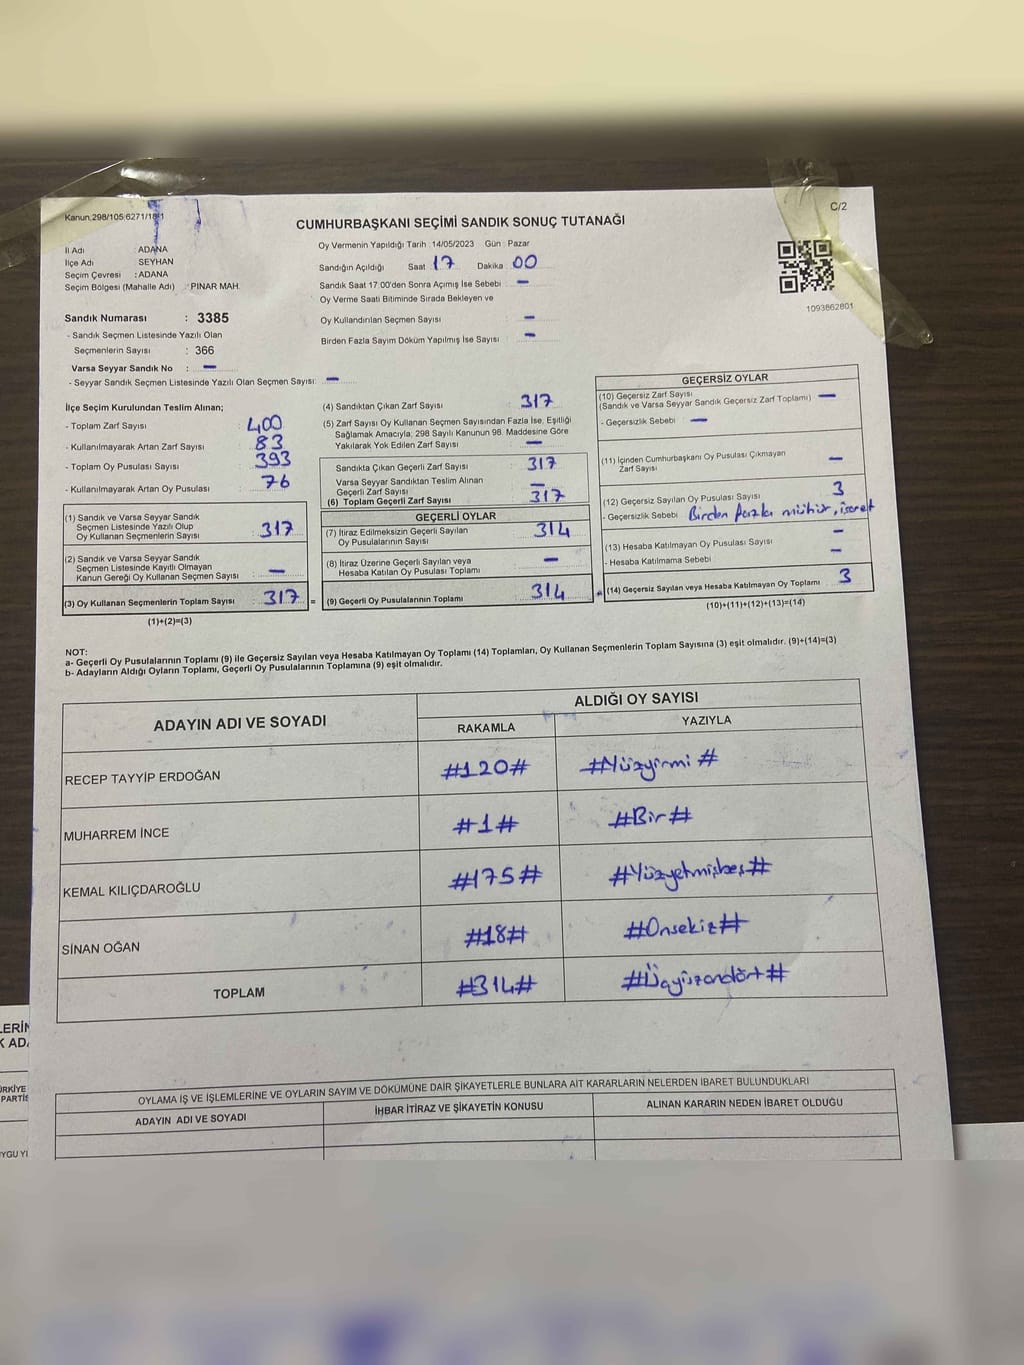 Kanun:298/105 6271/18-1
C/2
CUMHURBAŞKANI SEÇİMİ SANDIK SONUÇ TUTANAĞI
İl Adı : ADANA
İlçe Adı : SEYHAN
Seçim Çevresi : ADANA
Seçim Bölgesi (Mahalle Adı) : PINAR MAH.
Sandık Numarası : 3385
- Sandık Seçmen Listesinde Yazılı Olan
Seçmenlerin Sayısı : 366
Varsa Seyyar Sandık No : —
- Seyyar Sandık Seçmen Listesinde Yazılı Olan Seçmen Sayısı: —
Oy Vermenin Yapıldığı Tarih : 14/05/2023 Gün : Pazar
Sandığın Açıldığı Saat 17 Dakika 00
Sandık Saat 17:00'den Sonra Açımış İse Sebebi : —
Oy Verme Saati Bitiminde Sırada Bekleyen ve
Oy Kullandırılan Seçmen Sayısı : —
Birden Fazla Sayım Döküm Yapılmış İse Sayısı : —
1093862801
İlçe Seçim Kurulundan Teslim Alınan;
- Toplam Zarf Sayısı : 400
- Kullanılmayarak Artan Zarf Sayısı : 83
- Toplam Oy Pusulası Sayısı : 393
- Kullanılmayarak Artan Oy Pusulası : 76
(1) Sandık ve Varsa Seyyar Sandık
Seçmen Listesinde Yazılı Olup
Oy Kullanan Seçmenlerin Sayısı : 317
(2) Sandık ve Varsa Seyyar Sandık
Seçmen Listesinde Kayıtlı Olmayan
Kanun Gereği Oy Kullanan Seçmen Sayısı : —
(3) Oy Kullanan Seçmenlerin Toplam Sayısı : 317 =
(1)+(2)=(3)
(4) Sandıktan Çıkan Zarf Sayısı : 317
(5) Zarf Sayısı Oy Kullanan Seçmen Sayısından Fazla İse, Eşitliği
Sağlamak Amacıyla, 298 Sayılı Kanunun 98. Maddesine Göre
Yakılarak Yok Edilen Zarf Sayısı : —
Sandıkta Çıkan Geçerli Zarf Sayısı : 317
Varsa Seyyar Sandıktan Teslim Alınan
Geçerli Zarf Sayısı : —
(6) Toplam Geçerli Zarf Sayısı : 317
GEÇERLİ OYLAR
(7) İtiraz Edilmeksizin Geçerli Sayılan
Oy Pusulalarının Sayısı : 314
(8) İtiraz Üzerine Geçerli Sayılan veya
Hesaba Katılan Oy Pusulası Toplamı : —
(9) Geçerli Oy Pusulalarının Toplamı : 314 +
GEÇERSİZ OYLAR
(10) Geçersiz Zarf Sayısı
(Sandık ve Varsa Seyyar Sandık Geçersiz Zarf Toplamı) —
- Geçersizlik Sebebi : —
(11) İçinden Cumhurbaşkanı Oy Pusulası Çıkmayan
Zarf Sayısı —
(12) Geçersiz Sayılan Oy Pusulası Sayısı 3
- Geçersizlik Sebebi : Birden fazla mühür, işaret
(13) Hesaba Katılmayan Oy Pusulası Sayısı —
- Hesaba Katılmama Sebebi : —
(14) Geçersiz Sayılan veya Hesaba Katılmayan Oy Toplamı : 3
(10)+(11)+(12)+(13)=(14)
NOT:
a- Geçerli Oy Pusulalarının Toplamı (9) ile Geçersiz Sayılan veya Hesaba Katılmayan Oy Toplamı (14) Toplamları, Oy Kullanan Seçmenlerin Toplam Sayısına (3) eşit olmalıdır. (9)+(14)=(3)
b- Adayların Aldığı Oyların Toplamı, Geçerli Oy Pusulalarının Toplamına (9) eşit olmalıdır.
ADAYIN ADI VE SOYADI
ALDIĞI OY SAYISI
RAKAMLA YAZIYLA
RECEP TAYYİP ERDOĞAN #120# #Yüzyirmi#
MUHARREM İNCE #1# #Bir#
KEMAL KILIÇDAROĞLU #175# #Yüzyetmişbeş#
SİNAN OĞAN #18# #Onsekiz#
TOPLAM #314# #Üçyüzondört#
OYLAMA İŞ VE İŞLEMLERİNE VE OYLARIN SAYIM VE DÖKÜMÜNE DAİR ŞİKAYETLERLE BUNLARA AİT KARARLARIN NELERDEN İBARET BULUNDUKLARI
ADAYIN ADI VE SOYADI İHBAR İTİRAZ VE ŞİKAYETİN KONUSU ALINAN KARARIN NEDEN İBARET OLDUĞU